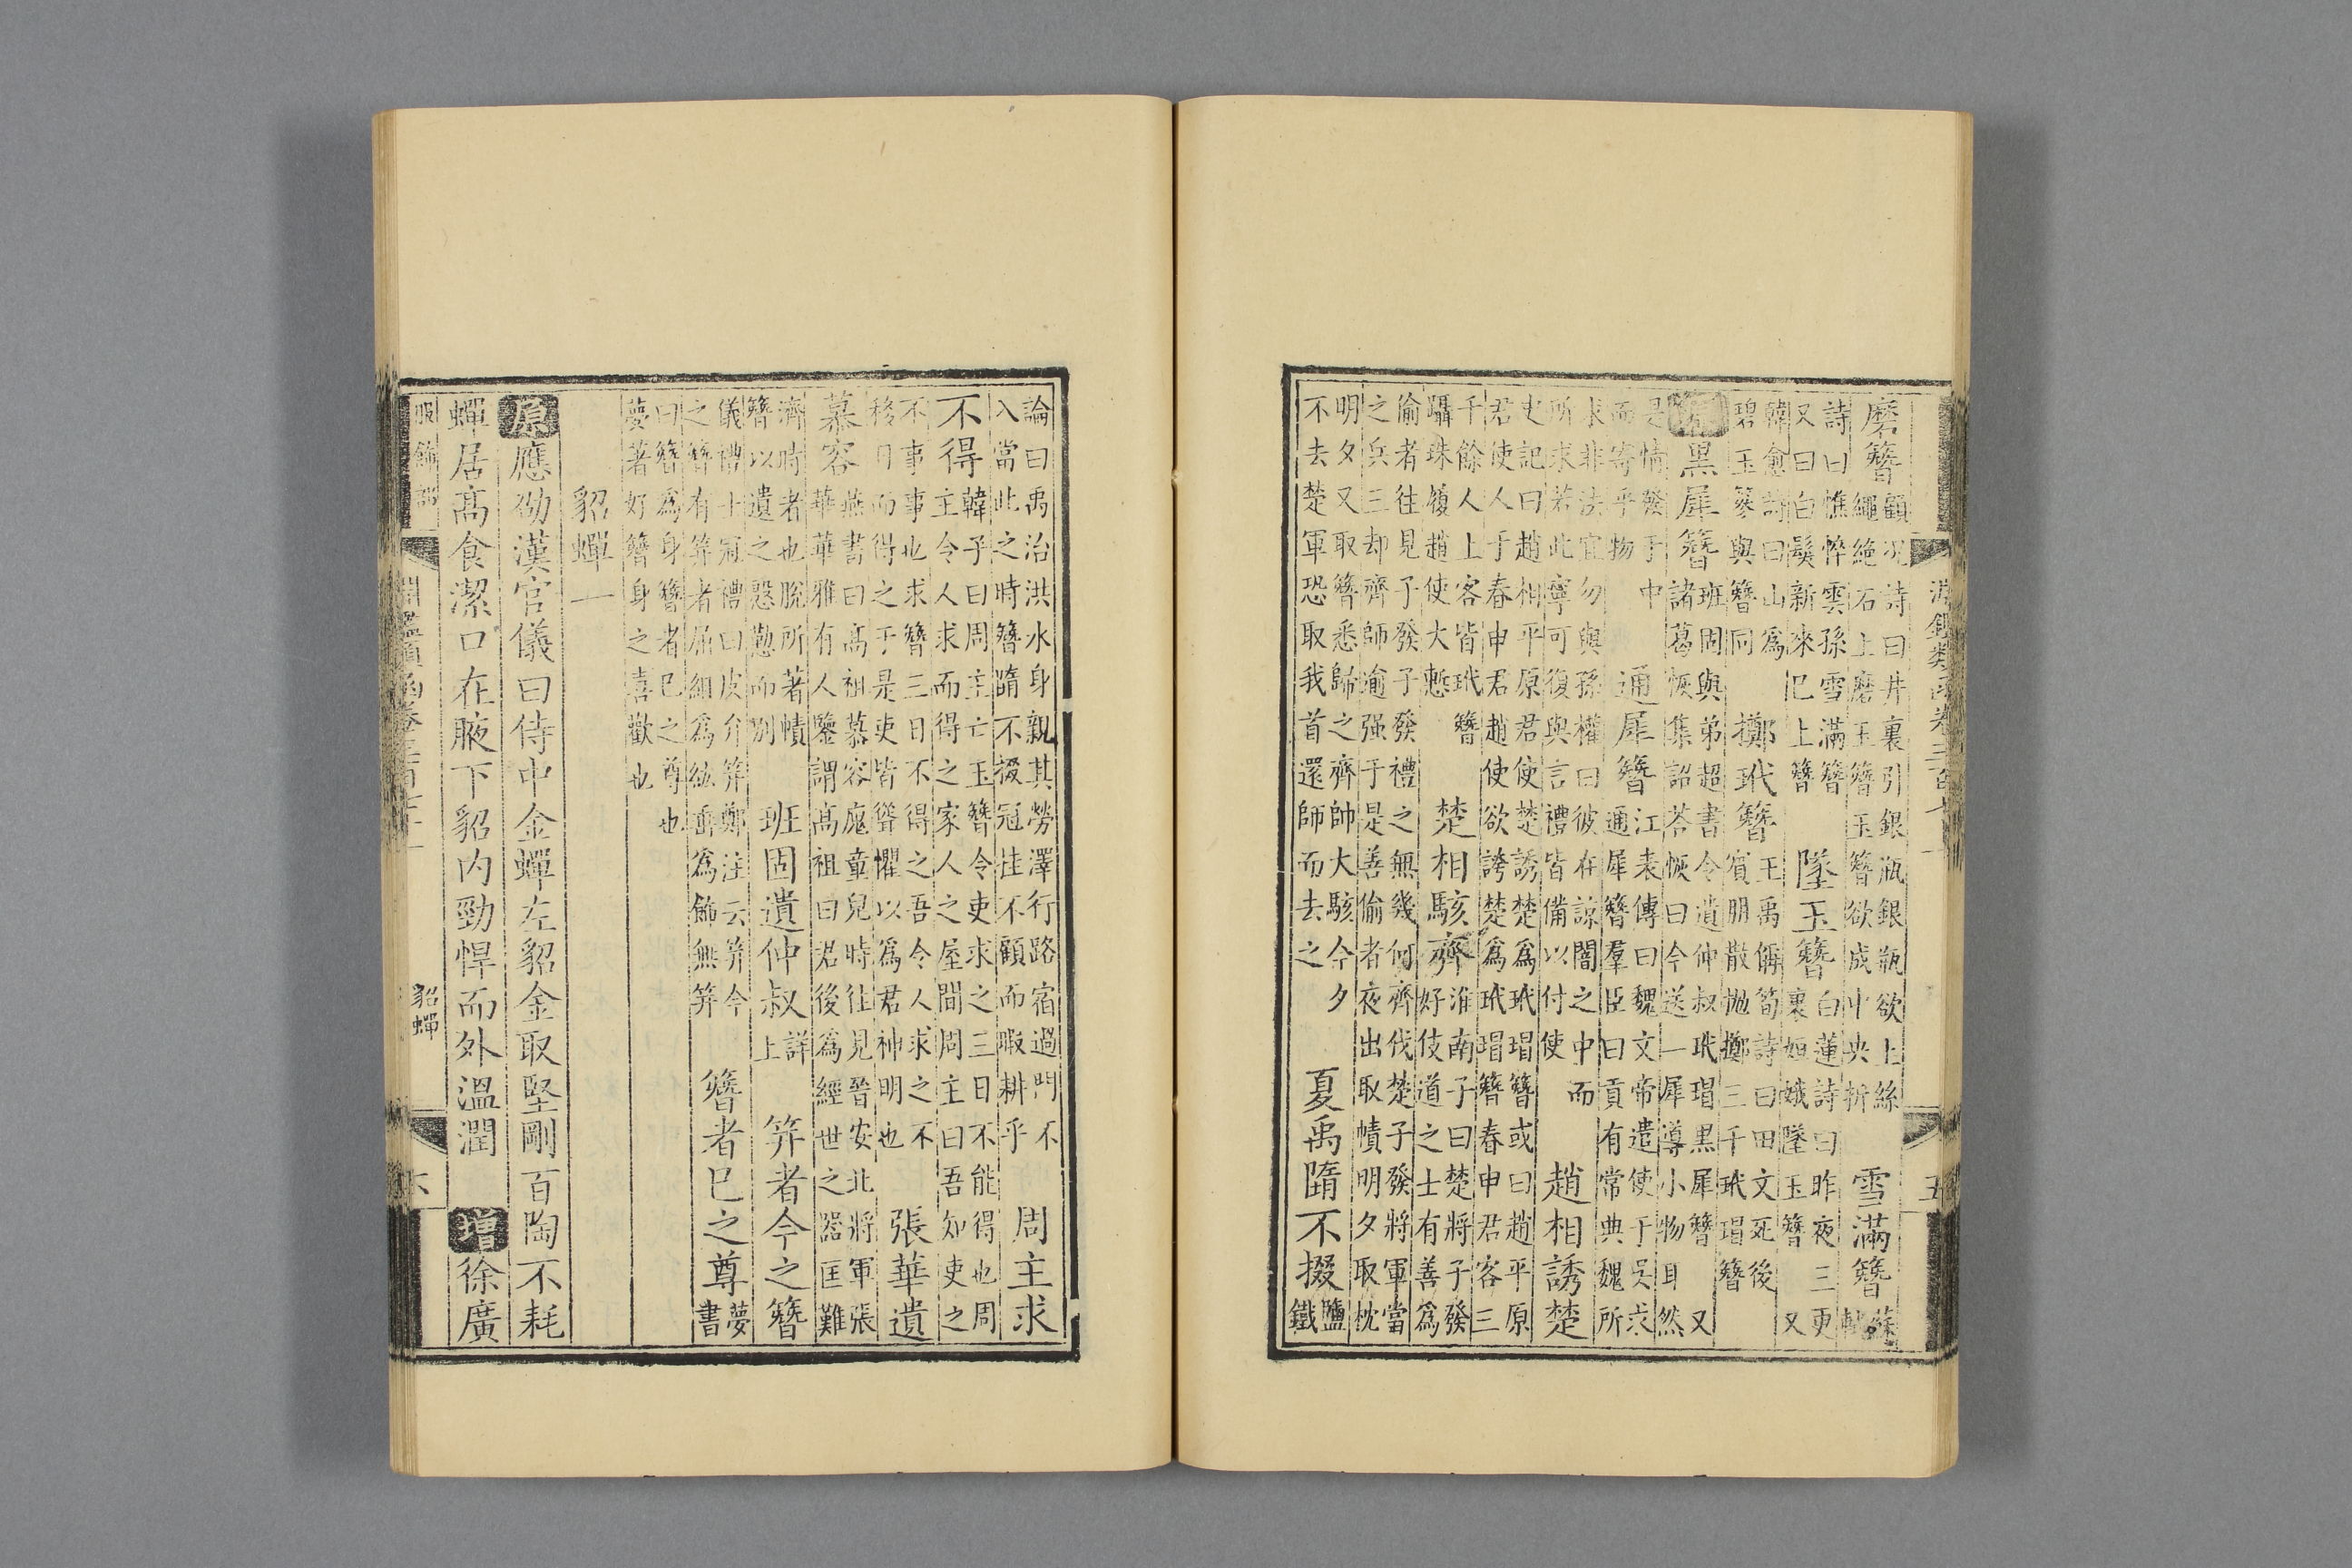 淵鑑類函卷三百七十一 五
磨簪
顧况詩曰井裏引銀瓶銀瓶欲上絲
繩絶石上磨玉簪玉簪欲成中央折
雪滿簪
蘇
軾
詩曰憔悴雲孫雪滿簪
又曰白髮新來巳上簪
墜玉簪
白蓮詩曰昨夜三更
裏姮娥墜玉簪 又
韓愈詩曰山爲
碧玉篸與簪同
擲玳簪
王禹偁筍詩曰田文死後
賓朋散拋擲三千玳瑁簪
原黑犀簪
班固與弟超書令遺仲叔玳瑁黑犀簪 又
諸葛恢集詔荅恢曰今送一犀導小物耳然
是情發于中
而寄乎物
通犀簪
江表傳曰魏文帝遣使于吳求
通犀簪羣臣曰貢有常典魏所
求非法宜勿與孫權曰彼在諒闇之中而
所求若此寧可復與言禮皆備以付使
趙相誘楚
史記曰趙相平原君使楚誘楚爲玳瑁簪或曰趙平原
君使人于春申君趙使欲誇楚爲玳瑁簪春申君客三
千餘人上客皆玳簪
躡珠履趙使大慙
楚相駭齊
淮南子曰楚將子發
好伎道之士有善爲
偷者往見子發子發禮之無幾何齊伐楚子發將軍當
之兵三却齊師逾强于是善偷者夜出取幘明夕取枕
明夕又取簪悉歸之齊帥大駭今夕
不去楚軍恐取我首還師而去之
夏禹隋不掇
鹽
鐵
論曰禹治洪水身親其勞澤行路宿過門不
入當此之時簪隋不掇冠挂不顧而暇耕乎
周主求
不得
韓子曰周主亡玉簪令吏求之三日不能得也周
主令人求而得之家人之屋間周主曰吾知吏之
不事事也求簪三日不得之吾令人求之不
移日而得之于是吏皆聳懼以爲君神明也
張華遺
慕容
燕書曰高祖慕容廆童兒時往見晉安北將軍張
華華雅有人鑒謂高祖曰君後爲經世之器匡難
濟時者也脫所著幘
簪以遺之慇懃而別
班固遺仲叔
詳
上
笄者今之簪
儀禮士冠禮曰皮弁笄鄭注云笄今
之簪有笄者屈組爲紘垂爲飾無笄
簪者巳之尊
夢
書
曰簪爲身簪者巳之尊也
夢著好簪身之喜歡也
貂蟬一
原應劭漢官儀曰侍中金蟬左貂金取堅剛百陶不耗
蟬居高食潔口在腋下貂内勁悍而外溫潤 增徐廣
服飾部
淵鑑類函卷三百七十一 貂蟬 六